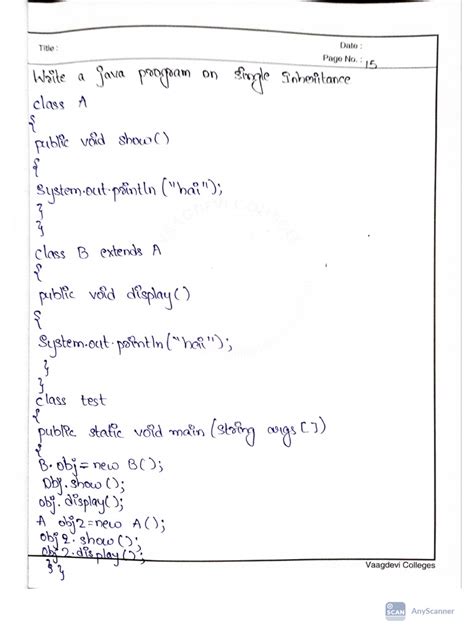 Title :
Date :
Page No. : 15
Write a java program on Single Inheritance
class A
{
public void show()
{
System.out.println ("hai");
}
}
class B extends A
{
public void display()
{
System.out.println ("hai");
}
}
class test
{
public static void main (String args [])
{
B. obj = new B();
Obj. show();
obj. display();
A obj2 = new A();
obj2. show();
obj2. display();
} }
Vaagdevi Colleges
SCAN
AnyScanner